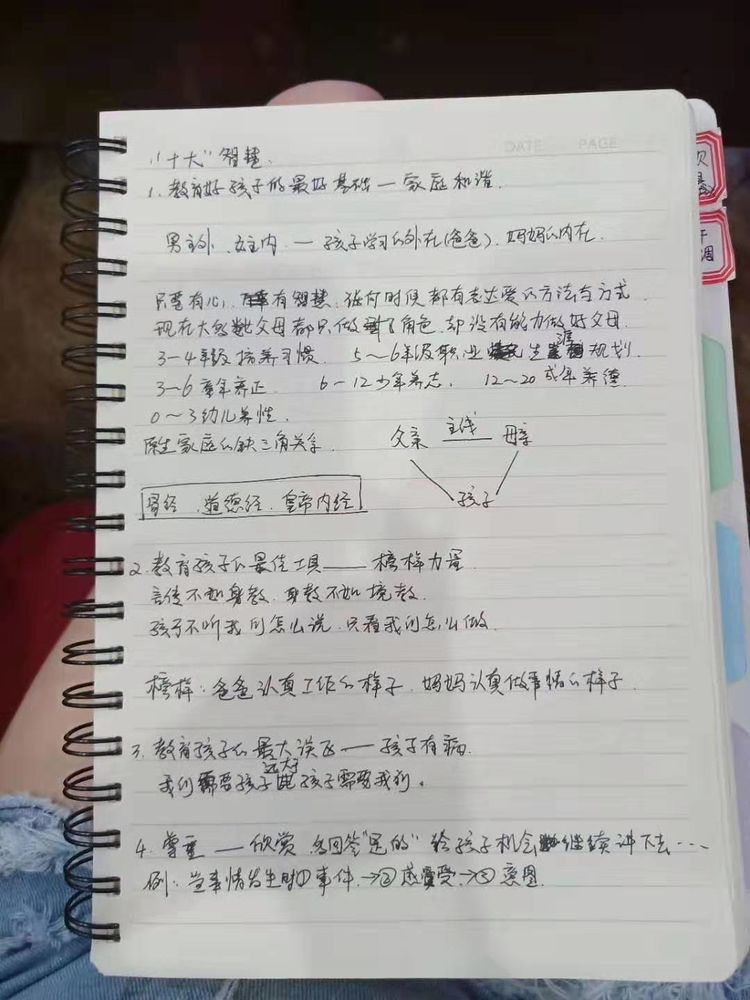 DATE PAGE
“十大”智慧.
1. 教育好孩子的最好基础—家庭和谐.
男主外. 女主内. — 孩子学习的外在(爸爸). 妈妈的内在.
只要有心, 有智慧. 任何时候都有表达爱的方法与方式.
现在大多数父母都只做到了角色. 却没有能力做好父母.
3-4年级培养习惯. 5~6年级职业生涯规划.
3-6童年养正. 6-12少年养志. 12~20成年养德.
0~3幼儿养性.
原生家庭的缺三角关系.
父亲 主线 母亲
孩子
胃经. 道德经. 皇帝内经
2. 教育孩子的最佳工具——榜样力量.
言传不如身教. 身教不如境教.
孩子不听我们怎么说. 只看我们怎么做.
榜样: 爸爸认真工作的样子. 妈妈认真做事情的样子.
3. 教育孩子的最大误区——孩子有病.
我们需要孩子远大于孩子需要我们。
4. 尊重 — 欣赏 多回答“是的” 给孩子机会继续讲下去…
例: 当事情发生时①事件. →②感受. →③意图.